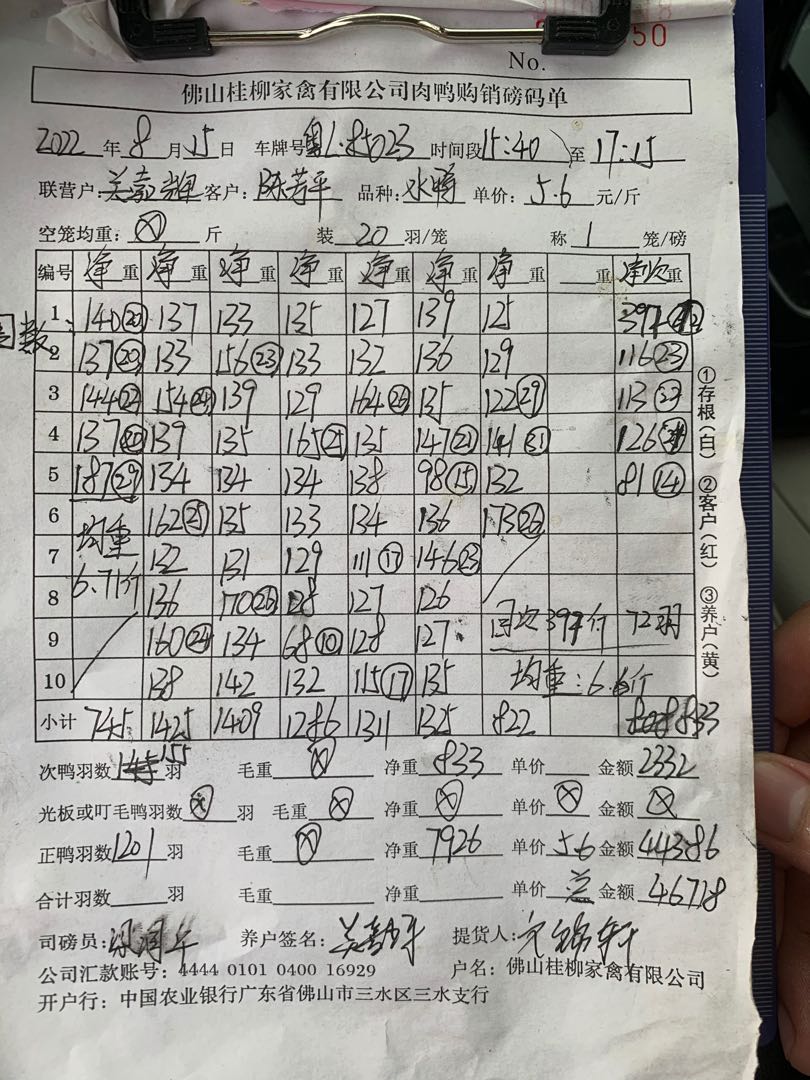 50
No.
佛山桂柳家禽有限公司肉鸭购销磅码单
2022 年 8 月 15 日 车牌号 粤L·85023 时间段 15:40 至 17:15
联营户: 关嘉辉 客户: 陈芳平 品种: 水鸭 单价: 5.6 元/斤
空笼均重: ⊗ 斤 装 20 羽/笼 称 1 笼/磅
编号 净重 净重 净重 净重 净重 净重 净重 重 净次重
1 140⑳ 137 133 135 127 139 125 397
2 137⑳ 133 156㉓ 133 132 136 129 116㉓
3 144㉒ 154㉔ 139 129 164㉖ 135 122㉙ 113
4 137⑳ 139 135 165㉕ 135 147㉑ 141㉛ 126
5 187㉙ 134 134 134 138 98⑮ 132 81⑭
6 162㉕ 135 133 134 136 173㉖
均重
7 132 131 129 111⑰ 146㉓
6.71斤
8 136 170㉖ 128 127 126
9 160㉔ 134 68⑩ 128 127 回次397斤 72羽
10 138 142 132 115⑰ 135 均重:6.6斤
小计 745 1425 1409 1286 1311 1325 822 833
①存根(白) ②客户(红) ③养户(黄)
次鸭羽数 155 羽 毛重 ⊗ 净重 833 单价 金额 2332
光板或叮毛鸭羽数 ⊗ 羽 毛重 ⊗ 净重 ⊗ 单价 ⊗ 金额 ⊗
正鸭羽数 1201 羽 毛重 ⊗ 净重 7926 单价 5.6 金额 44386
合计羽数 羽 毛重 净重 单价 金额 46718
司磅员: 养户签名: 提货人:
公司汇款账号: 4444 0101 0400 16929 户名: 佛山桂柳家禽有限公司
开户行: 中国农业银行广东省佛山市三水区三水支行